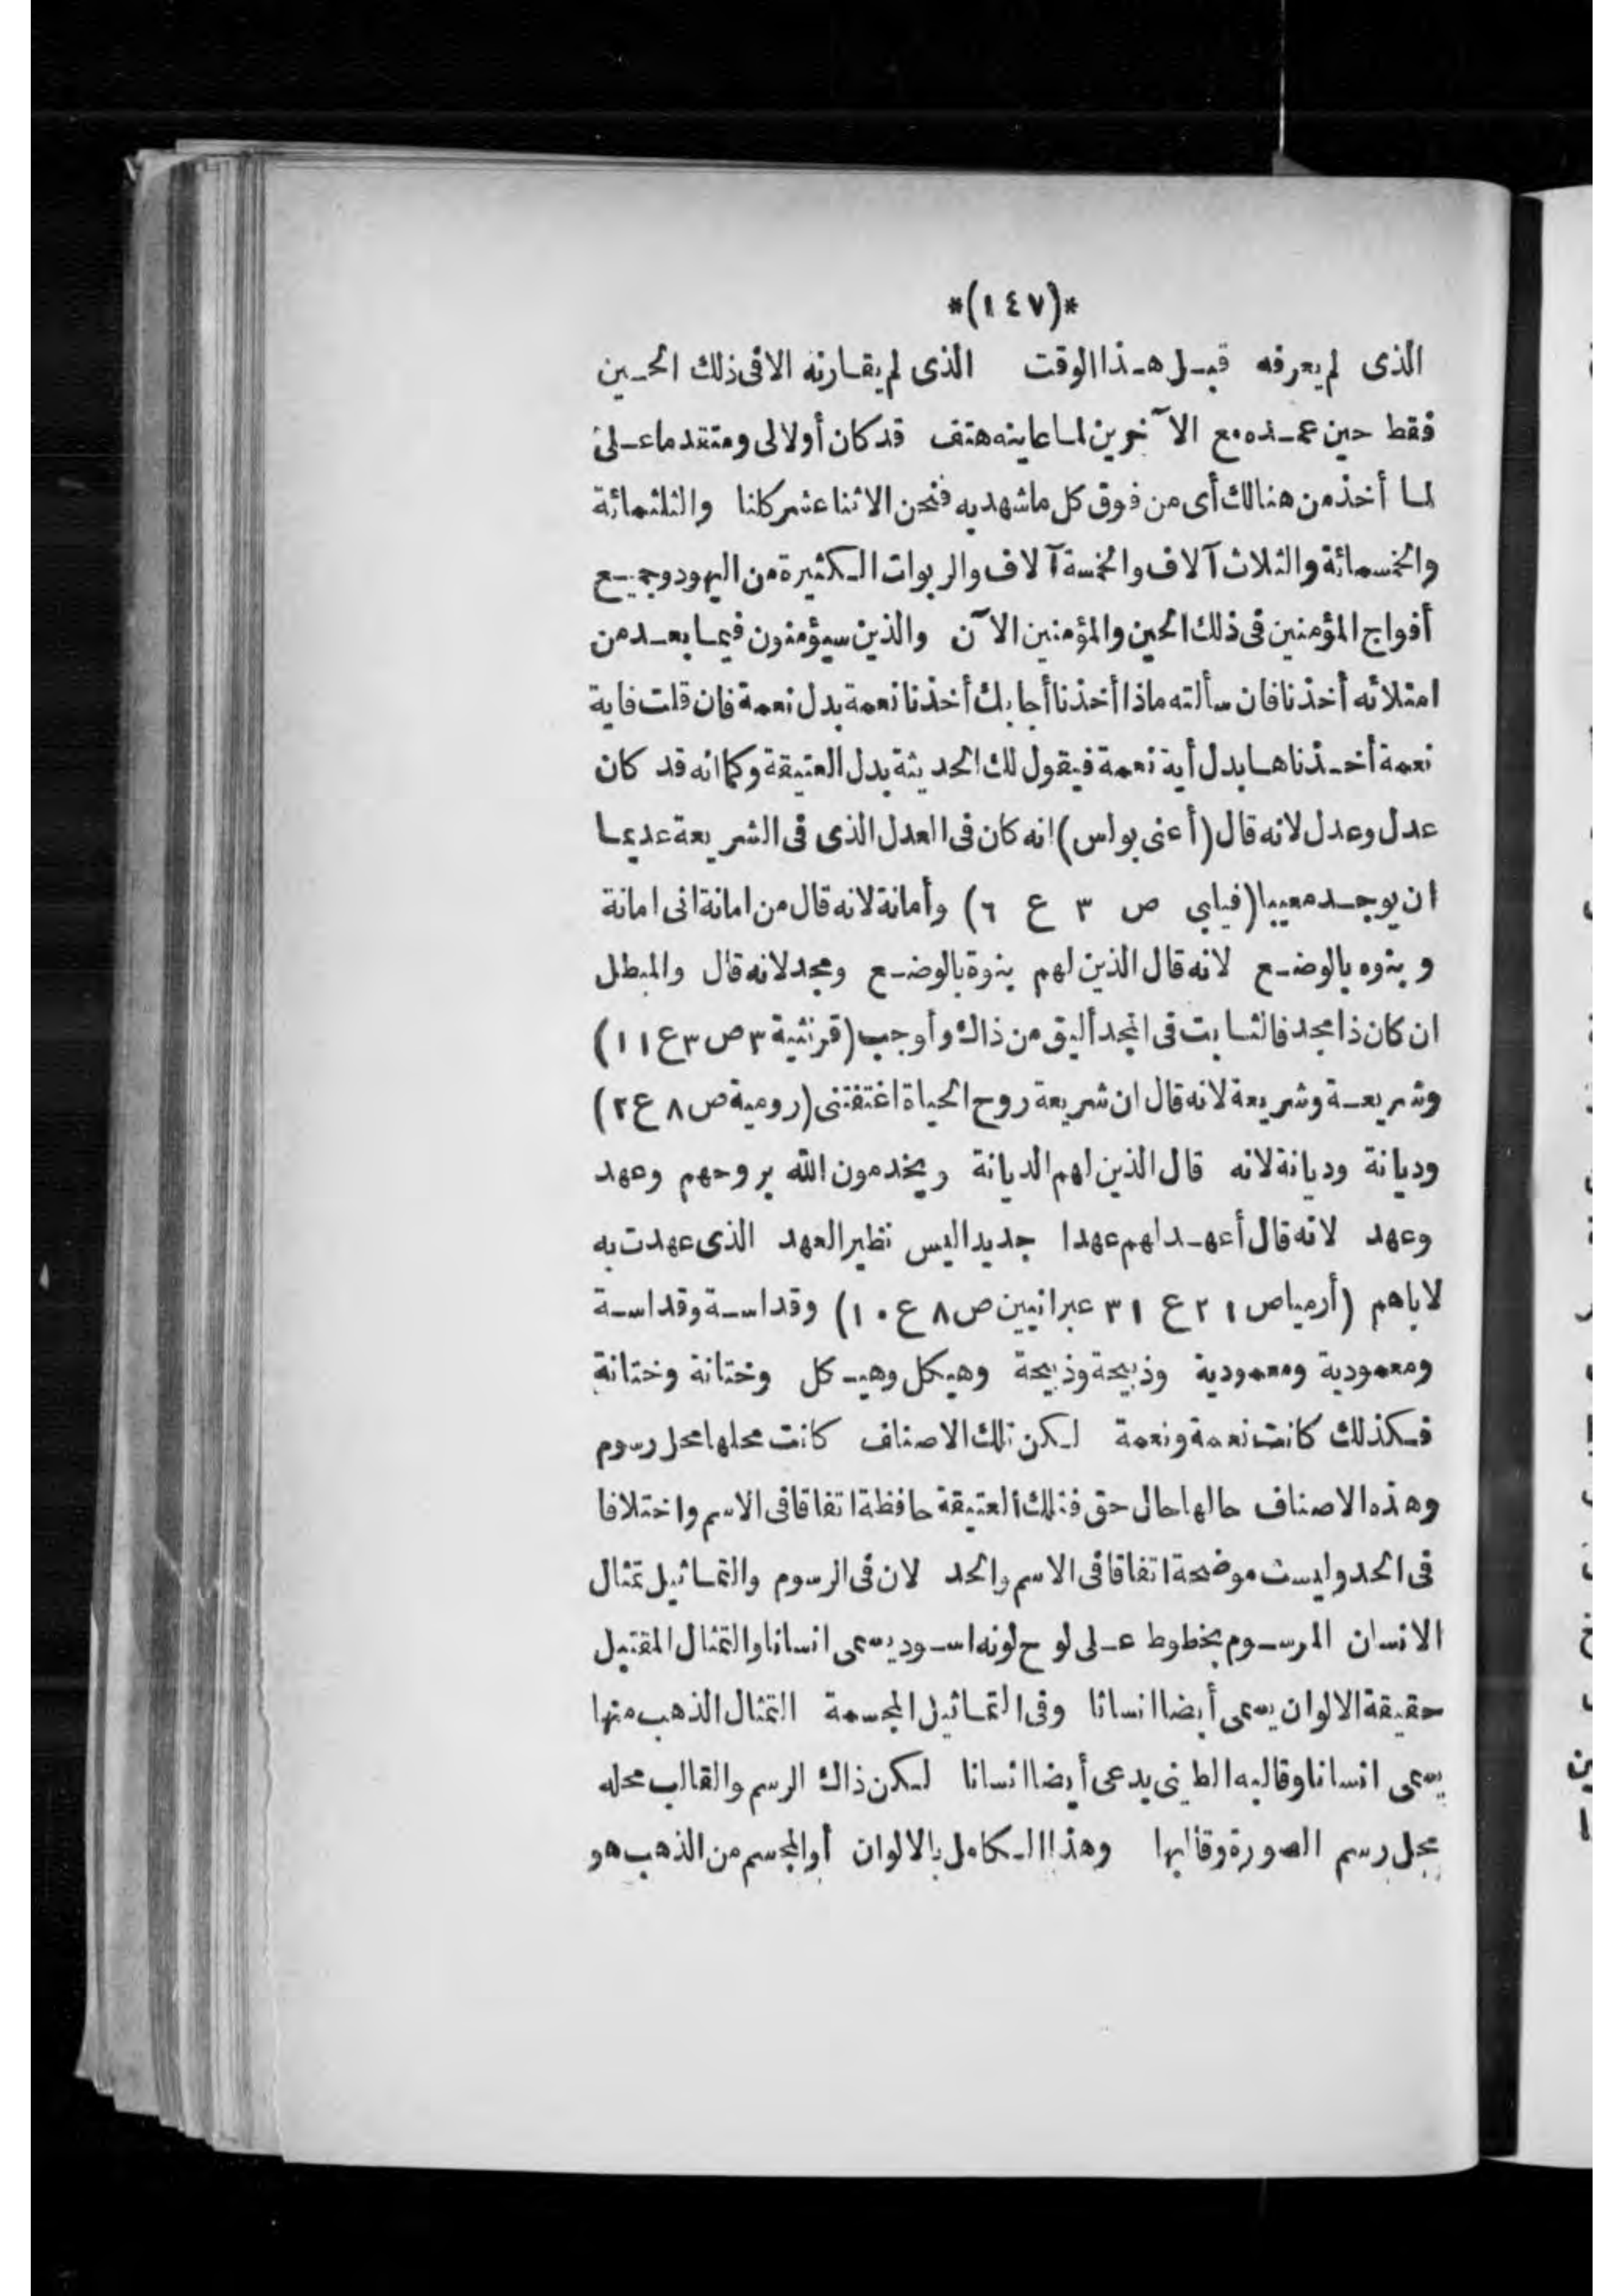 *(١٤٧)*
الذى لم يعرفه قبل هذا الوقت الذى لم يقارنه الا فى ذلك الحين
فقط حين عمده مع الآخرين لما عاينه هتف قد كان أولا لى ومتقدما على
لما أخذ من هنالك أى من فوق كل ما شهد به فنحن الاثنا عشر كلنا والثلثمائة
والخمسمائة والثلاث آلاف والخمسة آلاف والربوات الكثيرة من اليهود وجميع
أفواج المؤمنين فى ذلك الحين والمؤمنين الآن والذين سيؤمنون فيما بعد من
امتلائه أخذنا فان سألته ماذا أخذنا أجابك أخذنا نعمة بدل نعمة فان قلت فاية
نعمة أخذناها بدل أية نعمة فيقول لك الحديثة بدل العتيقة وكما انه قد كان
عدل وعدل لانه قال (أعنى بولس) انه كان فى العدل الذى فى الشريعة عديما
ان يوجد معيبا (فيلبي ص ٣ ع ٦) وأمانة لانه قال من امانة انى امانة
و بنوه بالوضع لانه قال الذين لهم بنوة بالوضع ومجد لانه قال والمبطل
ان كان ذا مجد فالثابت فى المجد أليق من ذاك وأوجب (قرنثية ٣ ص ٣ ع ١١)
وشريعة وشريعة لانه قال ان شريعة روح الحياة اغتقتنى (رومية ص ٨ ع ٢)
وديانة وديانة لانه قال الذين لهم الديانة ويخدمون الله بروحهم وعهد
وعهد لانه قال أعهد لهم عهدا جديدا ليس نظير العهد الذى عهدت به
لاباهم (أرميا ص ٢١ ع ٣١ عبرانيين ص ٨ ع ١٠) وقداسة وقداسة
ومعمودية ومعمودية وذبيحة وذبيحة وهيكل وهيكل وختانة وختانة
فكذلك كانت نعمة ونعمة لكن تلك الاصناف كانت محلها محل رسوم
وهذه الاصناف حالها حال حق فتلك العتيقة حافظة اتفاقا فى الاسم واختلافا
فى الحد وليست موضحة اتفاقا فى الاسم والحد لان فى الرسوم والتماثيل تمثال
الانسان المرسوم بخطوط على لوح لونه اسود يسمى انسانا والتمثال المقتبل
حقيقة الالوان يسمى أيضا انسانا وفى التماثيل المجسمة التمثال الذهب منها
يسمى انسانا وقالبه الطينى يدعى أيضا انسانا لكن ذاك الرسم والقالب محله
محل رسم الصورة وقالبها وهذا الكامل بالالوان أو المجسم من الذهب هو